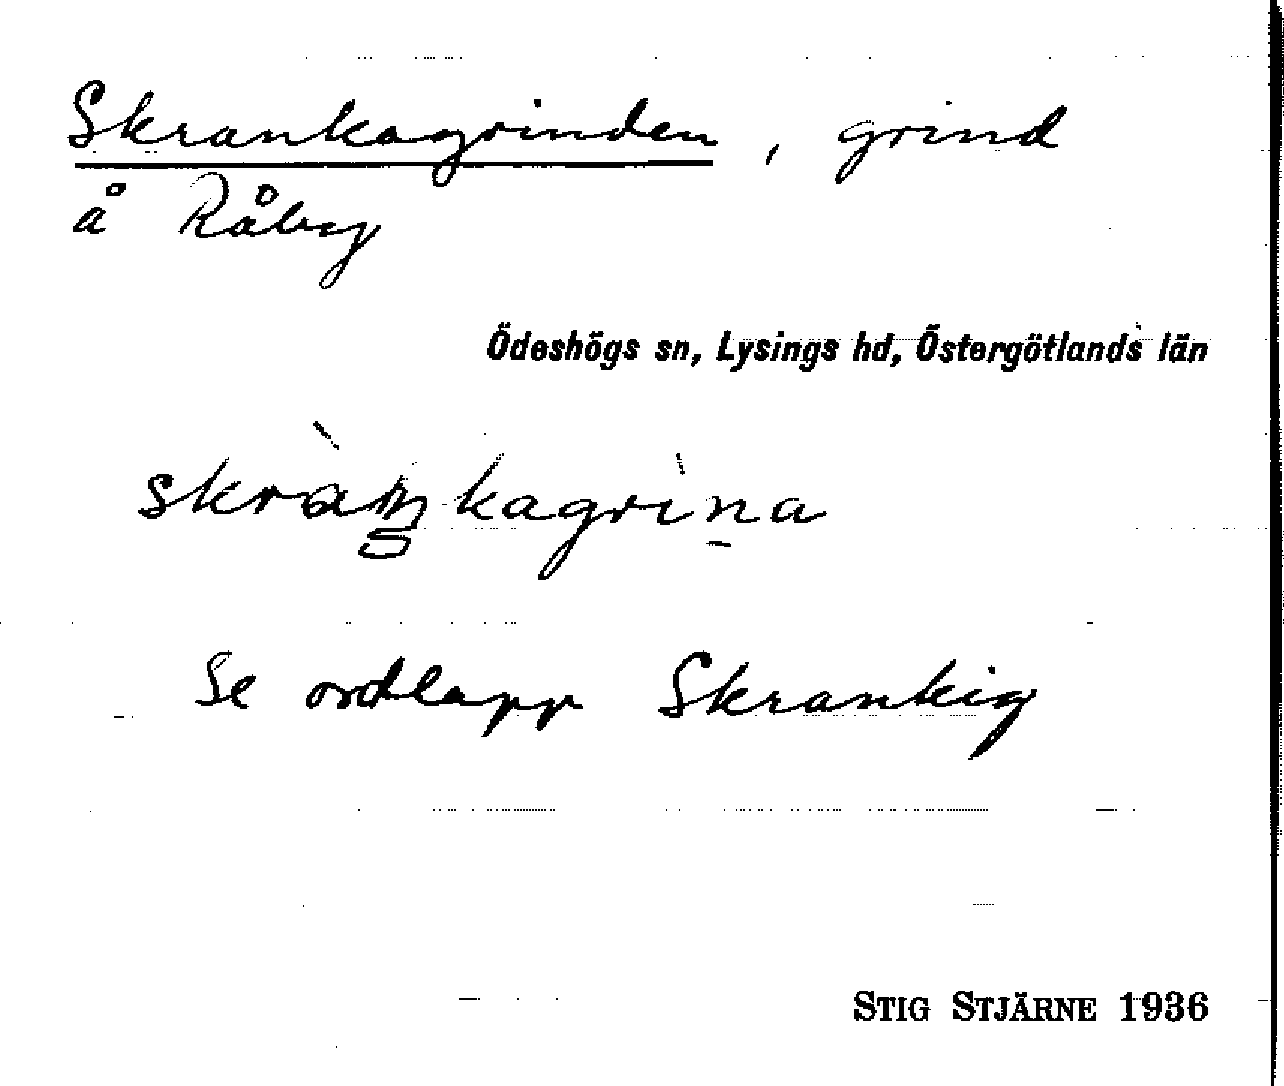 Skrankagrinden, grind
å Råby
Ödeshögs sn, Lysings hd, Östergötlands län
skràŋkagrìn̠a
Se ordlapp Skrankig
STIG STJÄRNE 1936